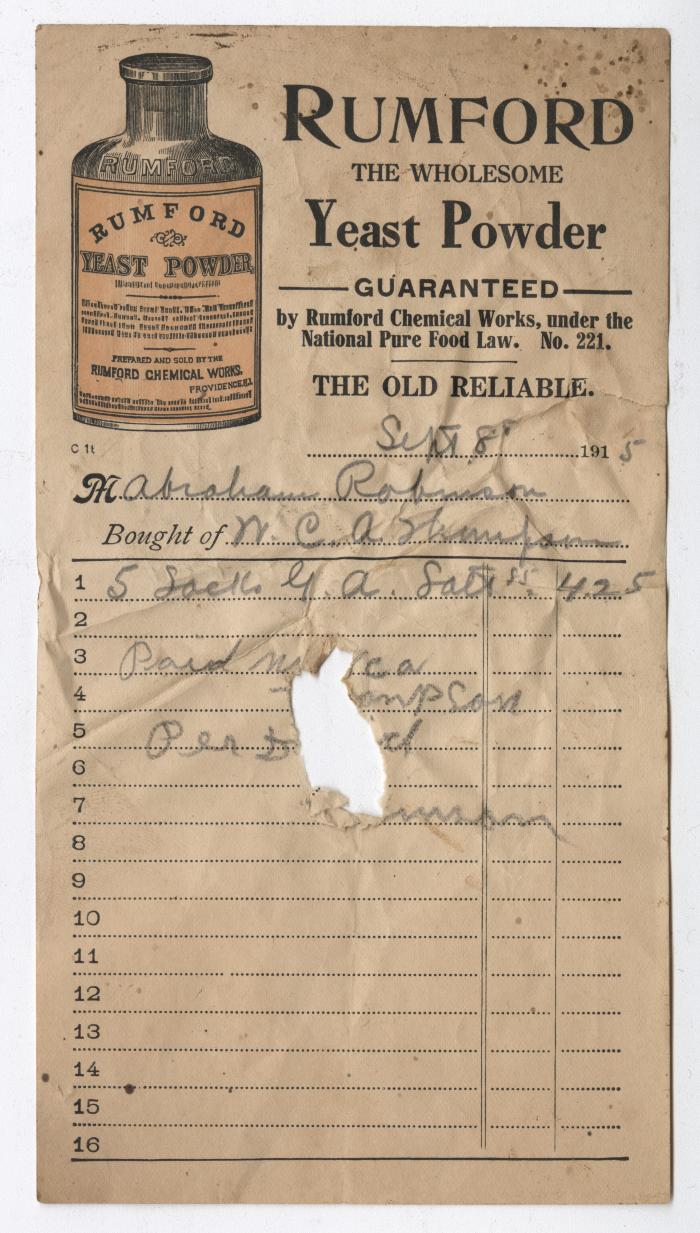 RUMFORD
RUMFORD
YEAST POWDER
PREPARED AND SOLD BY THE
RUMFORD CHEMICAL WORKS.
PROVIDENCE.R.I.
RUMFORD
THE WHOLESOME
Yeast Powder
GUARANTEED
by Rumford Chemical Works, under the
National Pure Food Law. No. 221.
THE OLD RELIABLE.
C 1t
Sept 8" 1915
M Abraham Robinson
Bought of W. C. A. Thompson
1 5 Sacks G. A. Salt 85 4.25
2
3 Paid ca
4 ompson
5 Per
6
7 inson
8
9
10
11
12
13
14
15
16